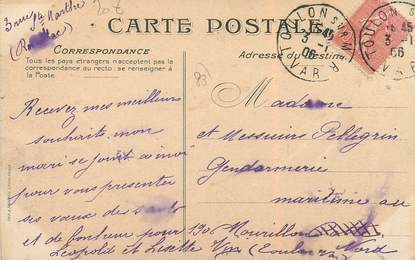 CARTE POSTALE
CORRESPONDANCE
Tous les pays étrangers n'acceptent pas la
correspondance au recto: se renseigner à
la Poste.
Adresse du Destin
TOULON SUR MER
3-1
06
VAR
TOULON S
45
3-1
06
VAR
83
Recevez mes meilleurs
souhaits, mon
mari se joint à moi
pour vous présenter
ses vœux de santé
et de bonheur pour 1906
Léopold et Lisette
Madame
et Messieurs Pellegrin
Gendarmerie
maritime au
Mourillon
Nord